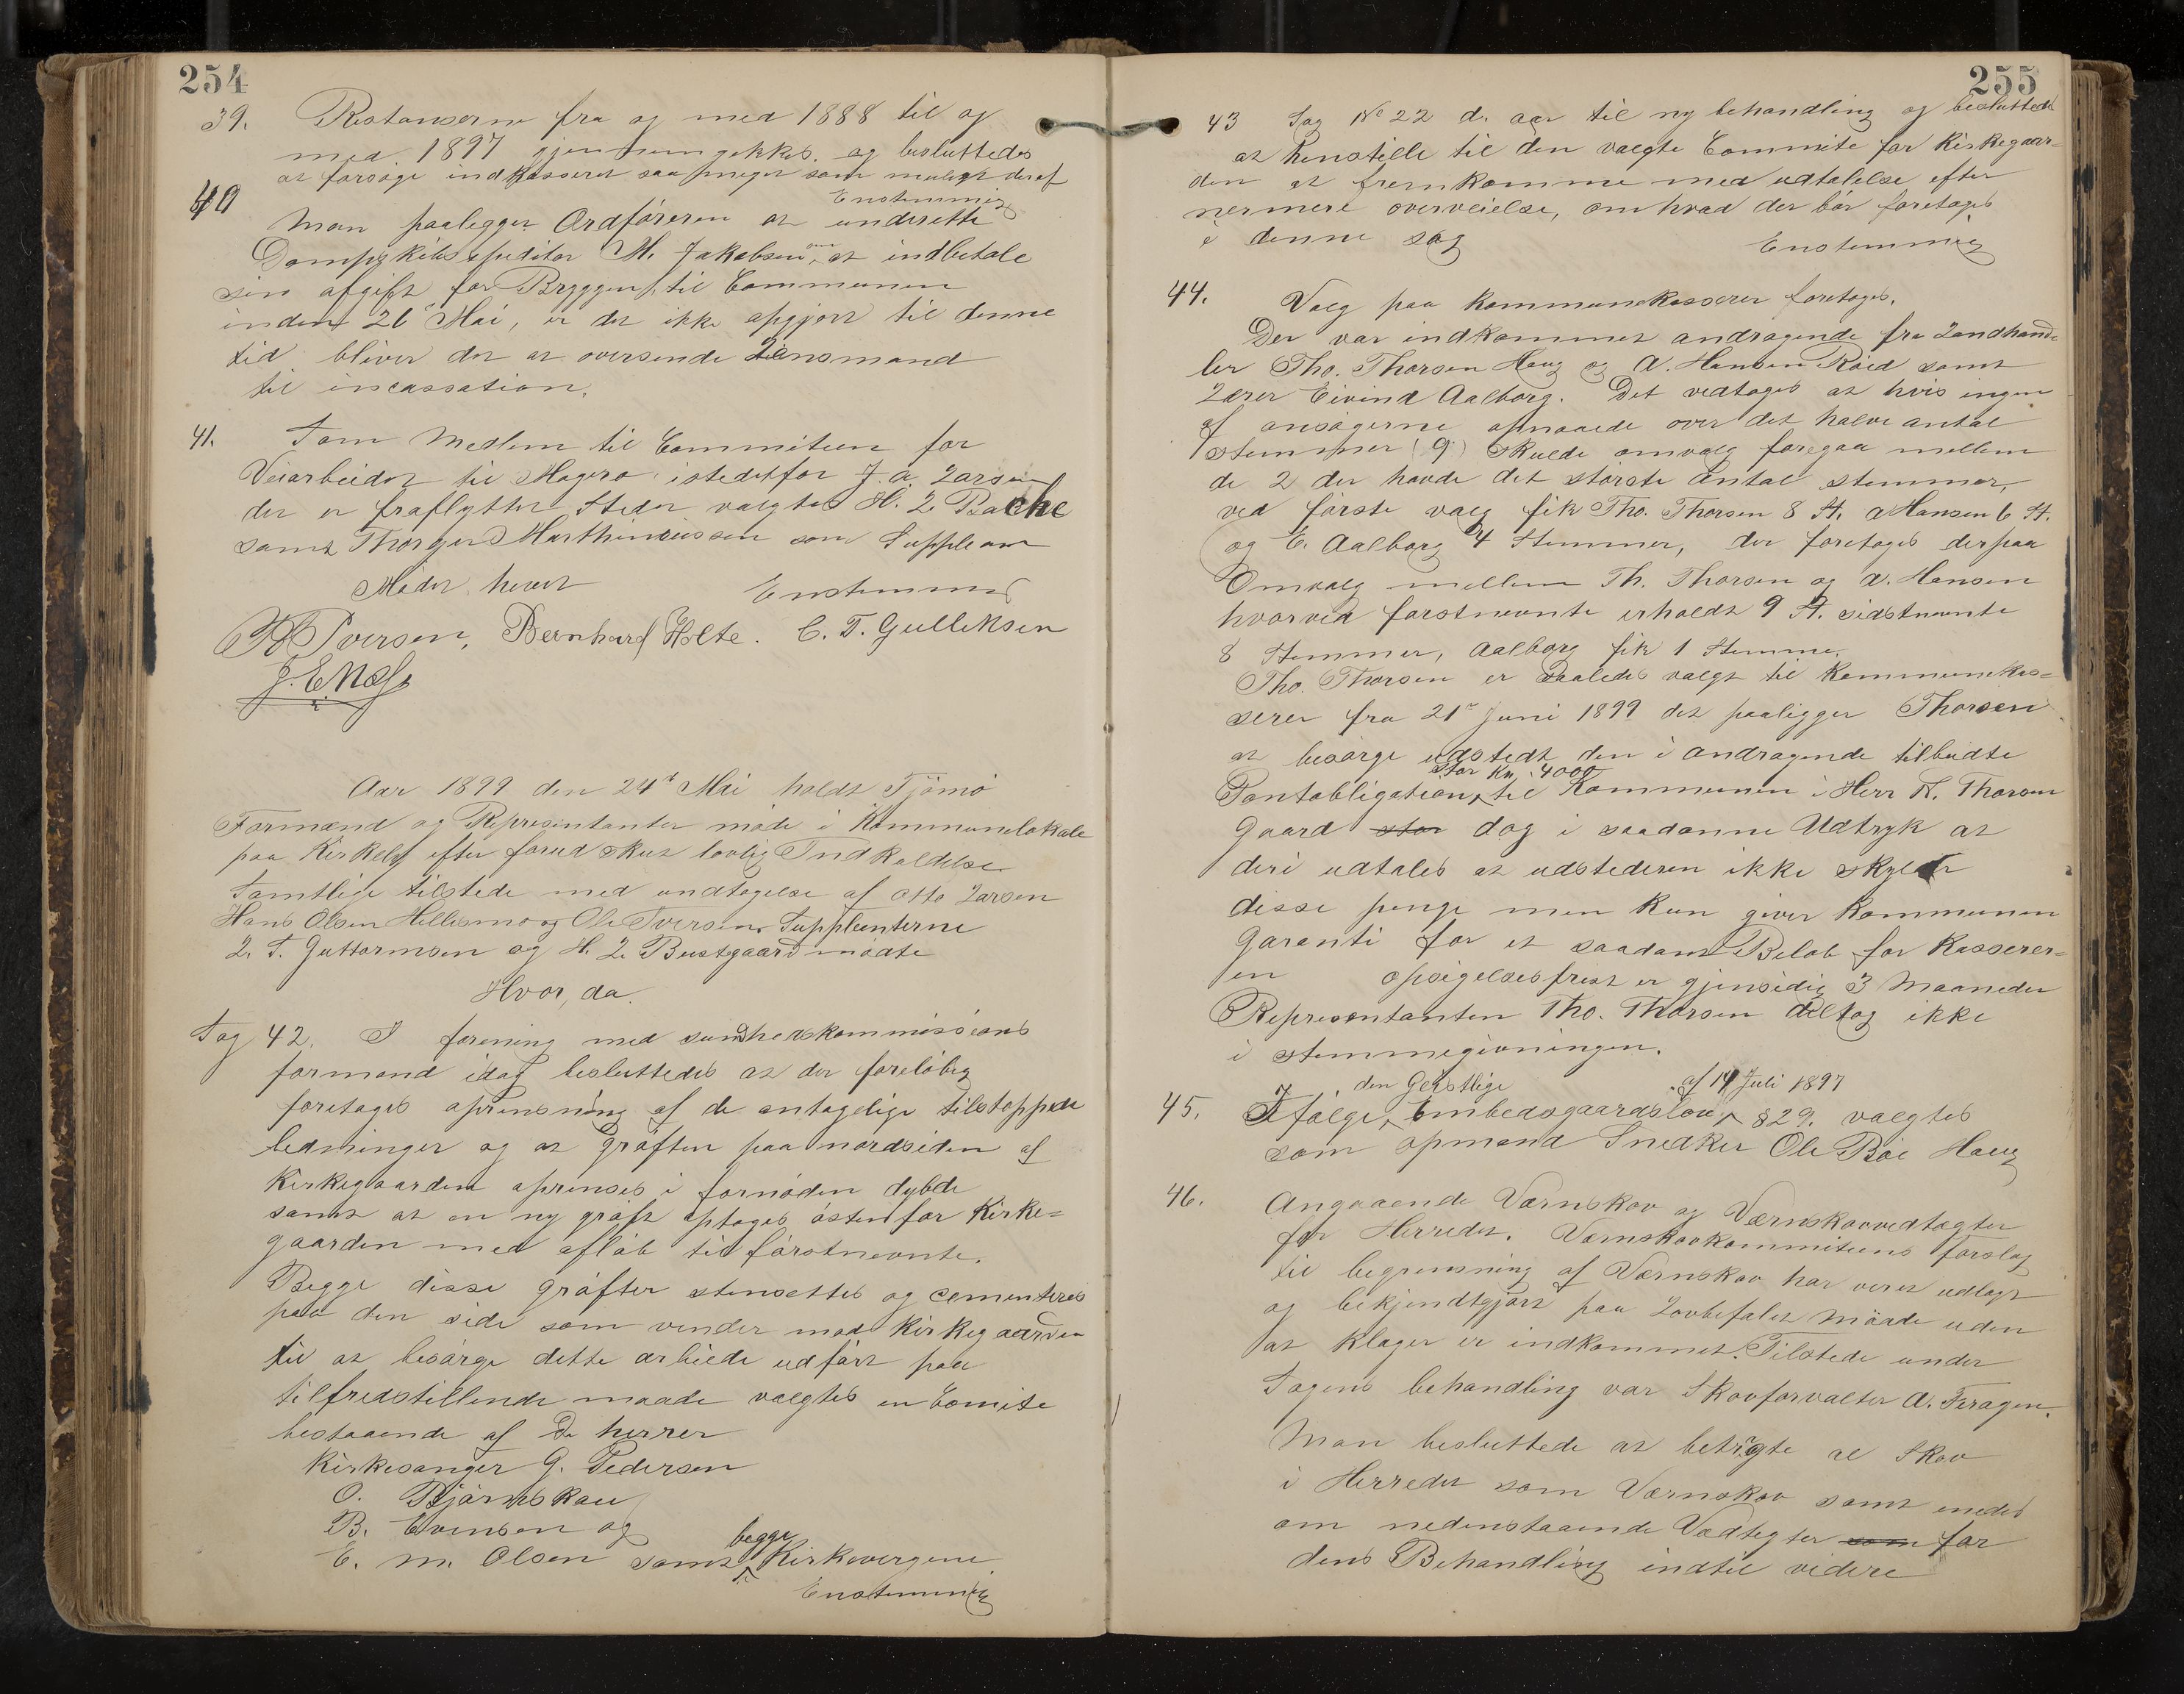 254
39. Restanserne fra og med 1888 til og
med 1897 gjennemgikkes og besluttedes
at forsøge indkasseret saa meget som muligt deraf
Enstemmig
40 Man paalegger Ordføreren at underette
Dampskibsexpeditør M. Jakobsen om, at indbetale
sin afgift for Bryggen, til Communen
inden 26 Mai, er det ikke opgjort til denne
tid bliver det at oversende Lensmand
til incassation.
41. Som Medlem til Commiteen for
Veiarbeidet til Magerø istedetfor J. A. Larsen
der er fraflyttet Stedet valgtes H. L. Bache
samt Thorger Marthiniussen som Suppleant
Mødet hevet Enstemmig
B Iversen, Bernhard Holte. C. T. Gulliksen
J. E. Næss
Aar 1899 den 24de Mai holdt Tjömö
Formænd og Representanter møde i Kommunelokale
paa Kirkeby efter forud skeet lovlig Indkaldelse
Samtlige tilstede med undtagelse af Otto Larsen
Hans Olsen Hellesmo og Ole Iversen. Suppleanterne
L. T. Guttormsen og H. L. Bustgaard mødte
Hvor, da
Sag 42. I forening med sundhedskommissions
formand idag besluttedes at der foreløbig
foretages oprensning af de antagelige tilstoppede
ledninger og at grøften paa nordsiden af
Kirkegaarden oprenses i fornøden dybde
samt at en ny grøft optages østenfor Kirke=
gaarden med afløb til førstnevnte.
Begge disse grøfter stensettes og cementeres
paa den side som vender mod Kirkegaarden
til at besørge dette arbeide udført paa
tilfredstillende maade valgtes en Comite
bestaaende af De herrer
Kirkesanger G. Pedersen
O. Bjørnskau
B. Evensen og
begge
E. M. Olsen samt Kirkevergene
Enstemmig
255
43 Sag No 22 d. aar til ny behandling og besluttedes
at henstille til den valgte Commite for Kirkegaar=
den at fremkomme med udtalelse efter
nermere overveielse, om hvad der bør foretages
i denne sag Enstemmig
44. Valg paa Kommunekasserer foretoges.
Der var indkommet andragende fra Landhand=
ler Tho. Thorsen Haug og A. Hansen Røed samt
Lærer Eivind Aalborg. Det vedtoges at hvis ingen
af ansøgerne opnaaede over det halve antal
stemmer (9) skulde omvalg foregaa mellem
de 2 der havde det største antal stemmer,
ved første valg fik Tho. Thorsen 8 St. A Hansen 6 St.
og E. Aalborg 4 Stemmer, der foretoges derpaa
Omvalg mellem Th. Thorsen og A. Hansen
hvorved førstnevnte erholdt 9 St. sidstnevnte
8 Stemmer, Aalborg fik 1 Stemme.
Tho. Thorsen er saaledes valgt til Kommunekas=
serer fra 21de Juni 1899 det paaligger Thorsen
at besørge udstedt den i andragende tilbudte
stor Kr. 4000
Pantobligation, til Kommunen i Herr N. Thorsen
Gaard stor dog i saadanne Udtryk at
deri udtales at udstederen ikke skylder
disse penge men kun giver Kommunen
Garanti for et saadant Beløb for Kasserer=
en opsigelsesfrist er gjensidig 3 Maaneder
Representanten Tho. Thorsen deltog ikke
i stemmegivningen.
den Geistlige af 14 Juli 1897
45. Ifølge, Embedsgaardslov, § 29. valgtes
som opmand Snedker Ole Bøe Haug
46. Angaaende Værnskov og Værnskovvedtægter
for Herredet. Værnskovkommiteens Forslag
til begrensning af Værnskov har veret udlagt
og bekjendtgjort paa Lovbefalet Maade uden
at klager er indkommet. Tilstede under
Sagens behandling var Skovforvalter A. Feragen.
Man besluttede at betrigte al Skov
i Herredet som Værnskov samt enedes
om nedenstaaende Vedtegter som for
dens Behandling indtil videre